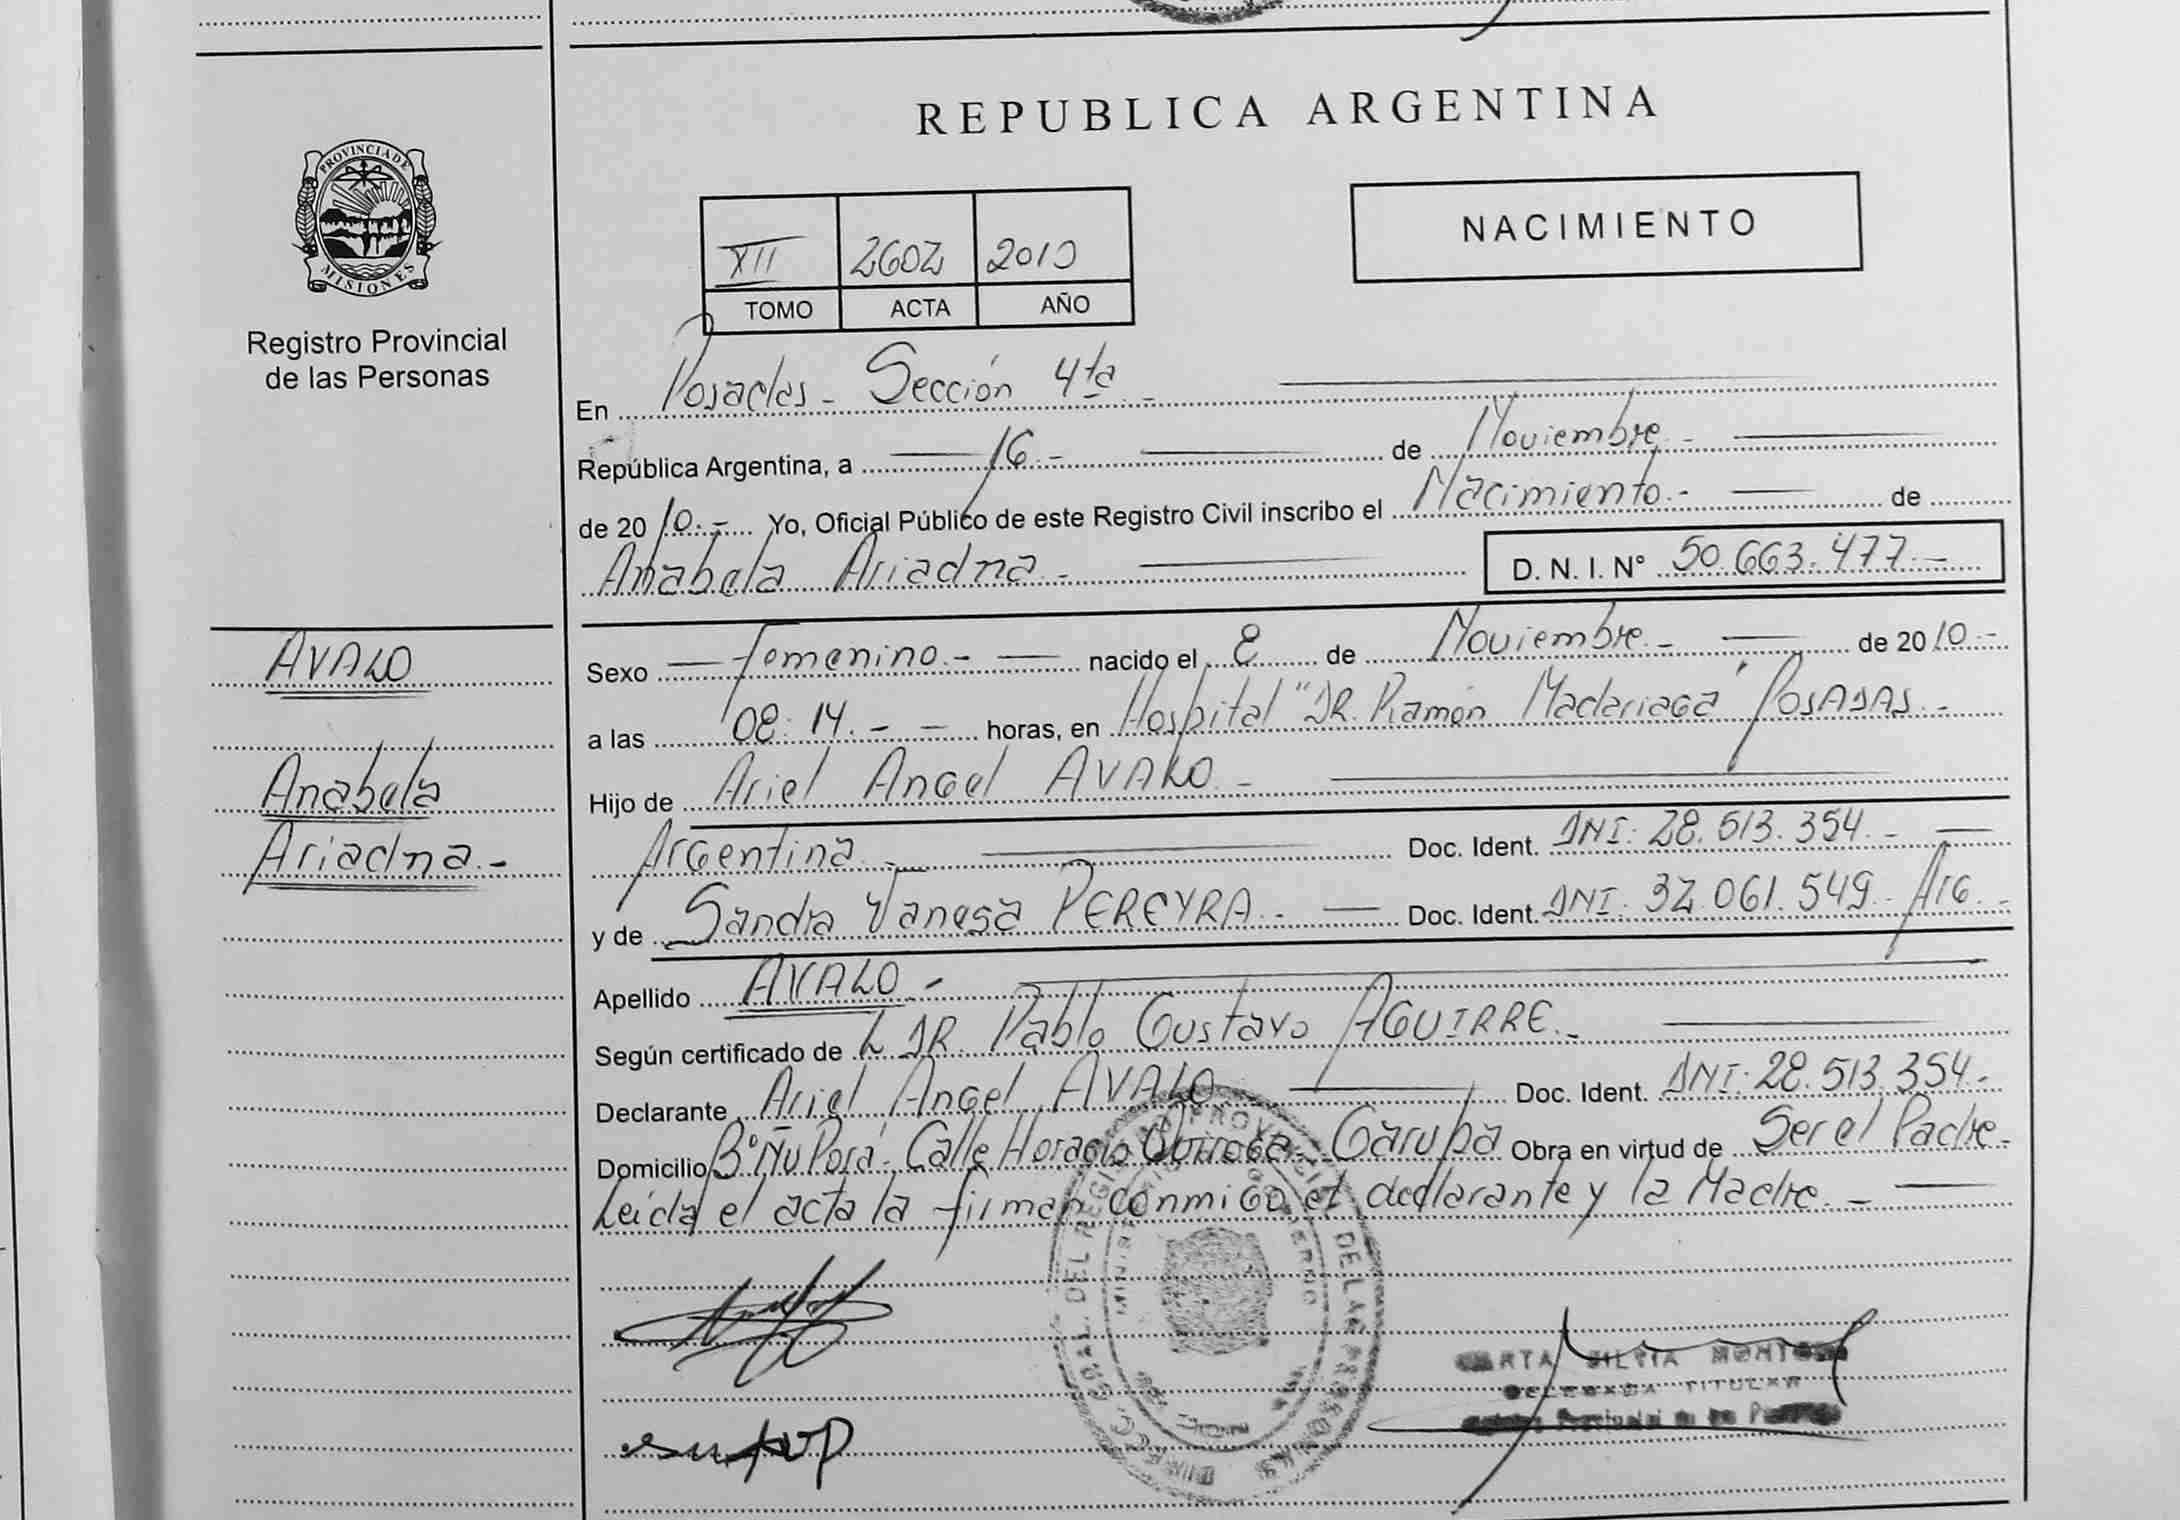 PROVINCIA DE
MISIONES
Registro Provincial
de las Personas
AVALO
Anabela
Ariadna.-
REPUBLICA ARGENTINA
NACIMIENTO
XII 2602 2010
TOMO ACTA AÑO
En Posadas - Sección 4ta -
República Argentina, a 16.- de Noviembre.-
de 2010.- Yo, Oficial Público de este Registro Civil inscribo el Nacimiento.- de
Anabela Ariadna.- D. N. I. N° 50.663.477.-
Sexo femenino.- nacido el 8 de Noviembre.- de 2010.-
a las 08:14.- - horas, en Hospital "DR. Ramón Madariaga" POSADAS.-
Hijo de Ariel Angel AVALO.-
Argentina.- Doc. Ident. DNI: 28.513.354.-
y de Sandra Vanesa PEREYRA.- Doc. Ident. DNI: 32.061.549.- Arg.-
Apellido AVALO.-
Según certificado de DR. Pablo Gustavo AGUIRRE.-
Declarante Ariel Angel AVALO Doc. Ident. DNI: 28.513.354.-
Domicilio B° Ñu Porá - Calle Horacio Quiroga - Garupá Obra en virtud de Ser el Padre.-
Leída el acta la firman conmigo el declarante y la Madre.-
DEL REGISTRO PROVINCIAL DE LAS PERSONAS
SILVIA
DELEGADA TITULAR